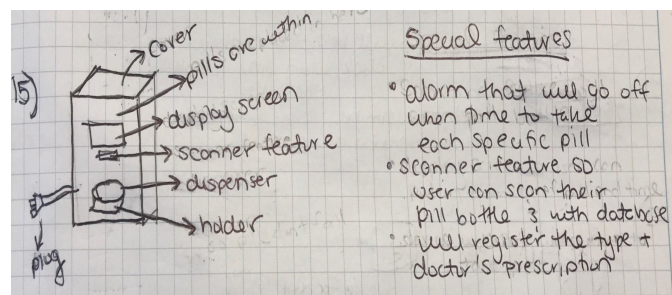 15)
cover
pills are within
display screen
scanner feature
dispenser
holder
plug
Special features
• alarm that will go off
when time to take
each specific pill
• scanner feature so
user can scan their
pill bottle & with database
• will register the type +
doctor's prescription